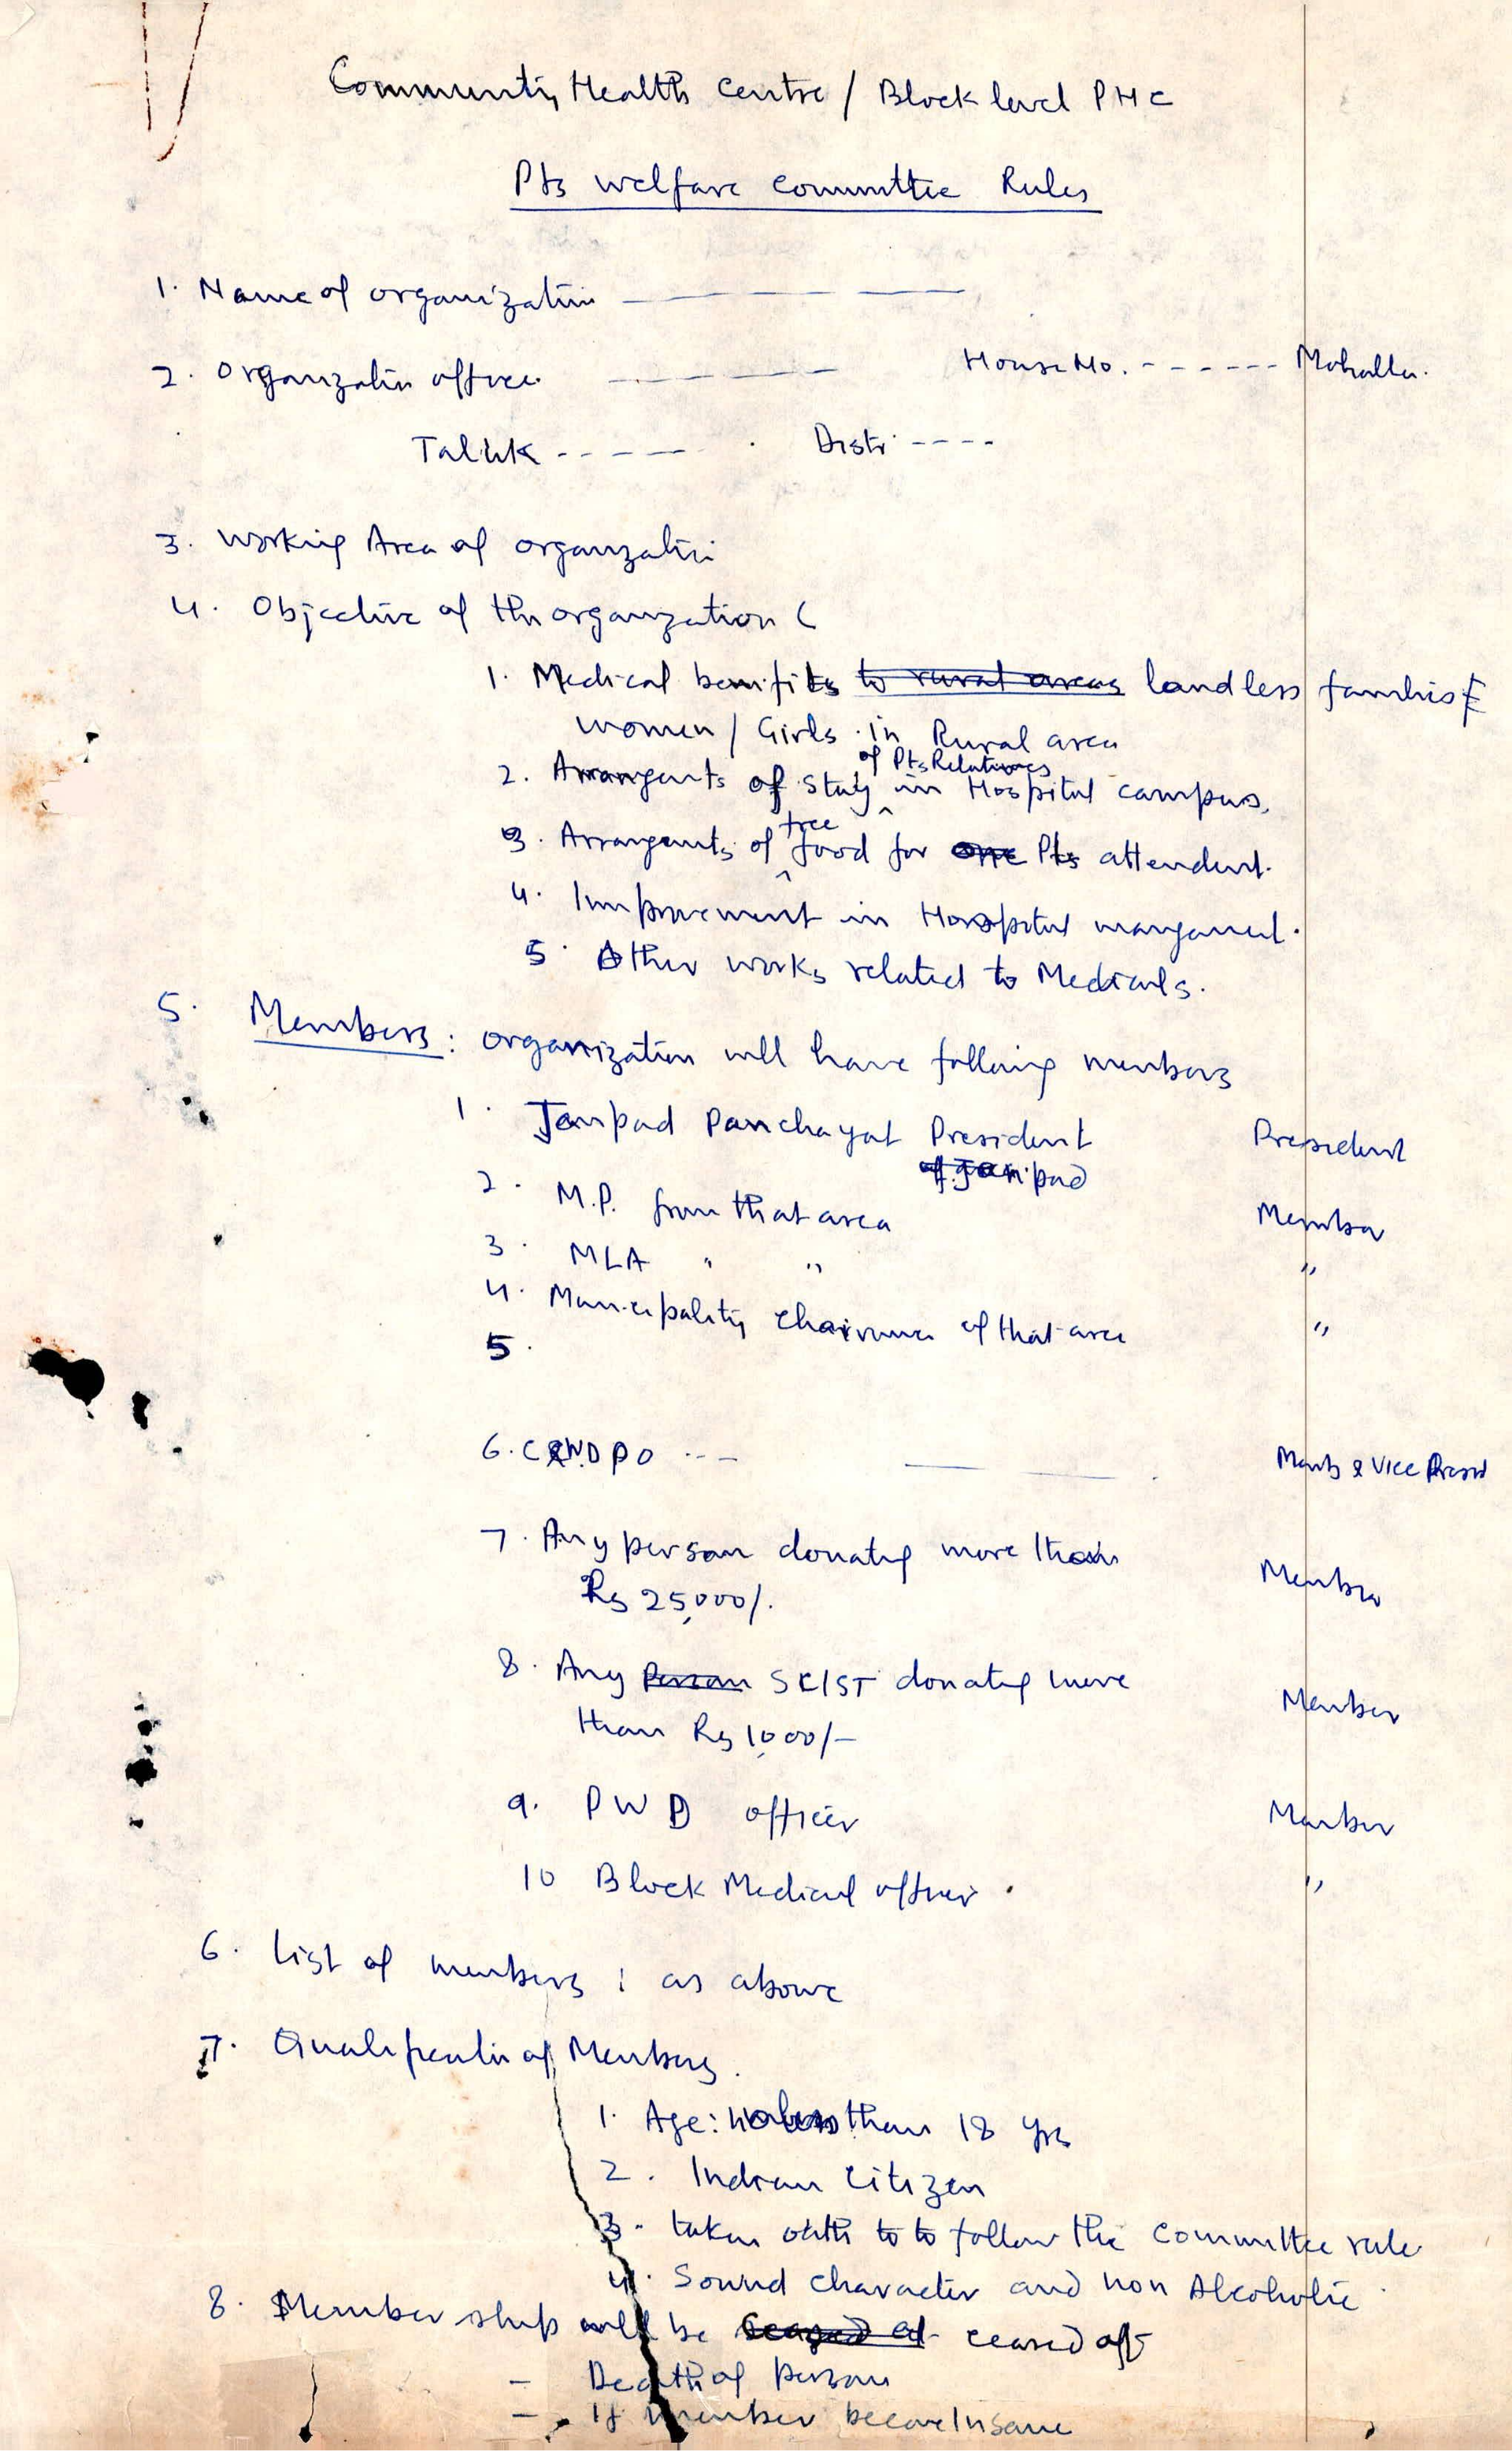 Community Health Centre / Block level PHC
Pts welfare committee Rules
1. Name of organization — — —
2. Organization office — — — House No. - - - - - - Mohalla.
Taluk - - - - - Distr. - - - -
3. Working Area of organization
4. Objective of the organization (
1. Medical benifits to rural areas landless families &
women / Girls in Rural area
2. Arrangents of stay of Pts Relatives in Hospital campus.
3. Arrangents of free food for one Pts attendent.
4. Improvement in Hospital mangament.
5. Other works related to Medicals.
5. Members : organization will have following members
1. Janpad Panchayat President President
of Janpad
2. M.P. from that area Member
3. MLA " " "
4. Municipality Chairman of that area "
5.
6. - - - — — Memb & Vice Presid
7. Any person donatig more than Member
Rs 25,000/.
8. Any Person SC/ST donatig more Member
than Rs 1,000/-
9. PWD officer Member
10 Block Medical officer. "
6. List of members : as above
7. Qualification of Members.
1. Age: no less than 18 yrs
2. Indian Citizen
3. taken oath to to follow the committee rule
4. Sound character and non Alcoholic
8. Membership will be ceased off
- Death of person
- If member become Insane